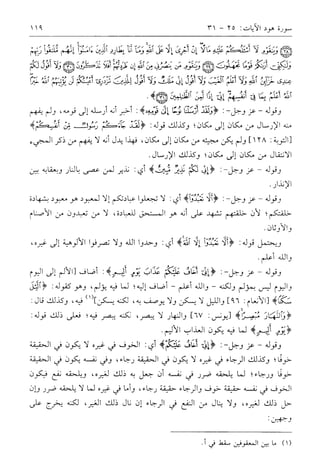 سورة هود الآيات: ٢٥ - ٣١ ١١٩
﴿٢٨﴾ وَيَٰقَوْمِ لَآ أَسْـَٔلُكُمْ عَلَيْهِ مَالًا إِنْ أَجْرِىَ إِلَّا عَلَى ٱللَّهِ وَمَآ أَنَا۠ بِطَارِدِ ٱلَّذِينَ ءَامَنُوٓا۟ إِنَّهُم مُّلَٰقُوا۟ رَبِّهِمْ
وَلَٰكِنِّىٓ أَرَىٰكُمْ قَوْمًا تَجْهَلُونَ ﴿٢٩﴾ وَيَٰقَوْمِ مَن يَنصُرُنِى مِنَ ٱللَّهِ إِن طَرَدتُّهُمْ أَفَلَا تَذَكَّرُونَ ﴿٣٠﴾ وَلَآ أَقُولُ لَكُمْ
عِندِى خَزَآئِنُ ٱللَّهِ وَلَآ أَعْلَمُ ٱلْغَيْبَ وَلَآ أَقُولُ إِنِّى مَلَكٌ وَلَآ أَقُولُ لِلَّذِينَ تَزْدَرِىٓ أَعْيُنُكُمْ لَن يُؤْتِيَهُمُ ٱللَّهُ خَيْرًا
ٱللَّهُ أَعْلَمُ بِمَا فِىٓ أَنفُسِهِمْ إِنِّىٓ إِذًا لَّمِنَ ٱلظَّٰلِمِينَ ﴿٣١﴾.
وقوله - عز وجل-: ﴿وَلَقَدْ أَرْسَلْنَا نُوحًا إِلَىٰ قَوْمِهِۦ﴾: أخبر أنه أرسله إلى قومه، ولم يفهم
منه الإرسال من مكان إلى مكان؛ وكذلك قوله: ﴿لَقَدْ جَآءَكُمْ رَسُولٌ مِّنْ أَنفُسِكُمْ﴾
[التوبة: ١٢٨] ولم يكن مجيئه من مكان إلى مكان، فهذا يدل أنه لا يفهم من ذكر المجيء
الانتقال من مكان إلى مكان؛ وكذلك الإرسال.
وقوله - عز وجل-: ﴿إِنِّى لَكُمْ نَذِيرٌ مُّبِينٌ﴾ أي: نذير لمن عصى بالنار وبعقابه بين
الإنذار.
وقوله - عز وجل-: ﴿أَلَّا تَعْبُدُوٓا۟﴾ أي: لا تجعلوا عبادتكم إلا لمعبود هو معبود بشهادة
خلقتكم؛ لأن خلقتهم تشهد على أنه هو المستحق للعبادة، لا من تعبدون من الأصنام
والأوثان.
ويحتمل قوله: ﴿أَلَّا تَعْبُدُوٓا۟ إِلَّا ٱللَّهَ﴾ أي: وحدوا الله ولا تصرفوا الألوهية إلى غيره،
والله أعلم.
وقوله - عز وجل-: ﴿إِنِّىٓ أَخَافُ عَلَيْكُمْ عَذَابَ يَوْمٍ أَلِيمٍ﴾: أضاف [الألم إلى اليوم
واليوم ليس بمؤلم ولكنه - والله أعلم - أضاف إليه؛ لما فيه يؤلم، وهو كقوله: ﴿وَجَعَلَ ٱلَّيْلَ
سَكَنًا﴾ [الأنعام: ٩٦] والليل لا يسكن ولا يوصف به، لكنه يسكن](١) فيه، وكذلك قال:
﴿وَٱلنَّهَارَ مُبْصِرًا﴾ [يونس: ٦٧] والنهار لا يبصر، لكنه يبصر فيه؛ فعلى ذلك قوله:
﴿يَوْمٍ أَلِيمٍ﴾ لما فيه يكون العذاب الأليم.
وقوله - عز وجل-: ﴿إِنِّىٓ أَخَافُ عَلَيْكُمْ﴾ أي: الخوف في غيره لا يكون في الحقيقة
خوفًا؛ وكذلك الرجاء في غيره لا يكون في الحقيقة رجاء، وفي نفسه يكون في الحقيقة
خوفًا ورجاء؛ لما يلحقه ضرر في نفسه أن جعل به ذلك لغيره، ويلحقه نفع فيكون
الخوف في نفسه حقيقة خوف والرجاء حقيقة رجاء، وأما في غيره لما لا يلحقه ضرر وإن
حل ذلك لغيره، ولا ينال من النفع في الرجاء إن نال ذلك الغير، لكنه يخرج على
وجهين:
(١) ما بين المعقوفين سقط في أ.